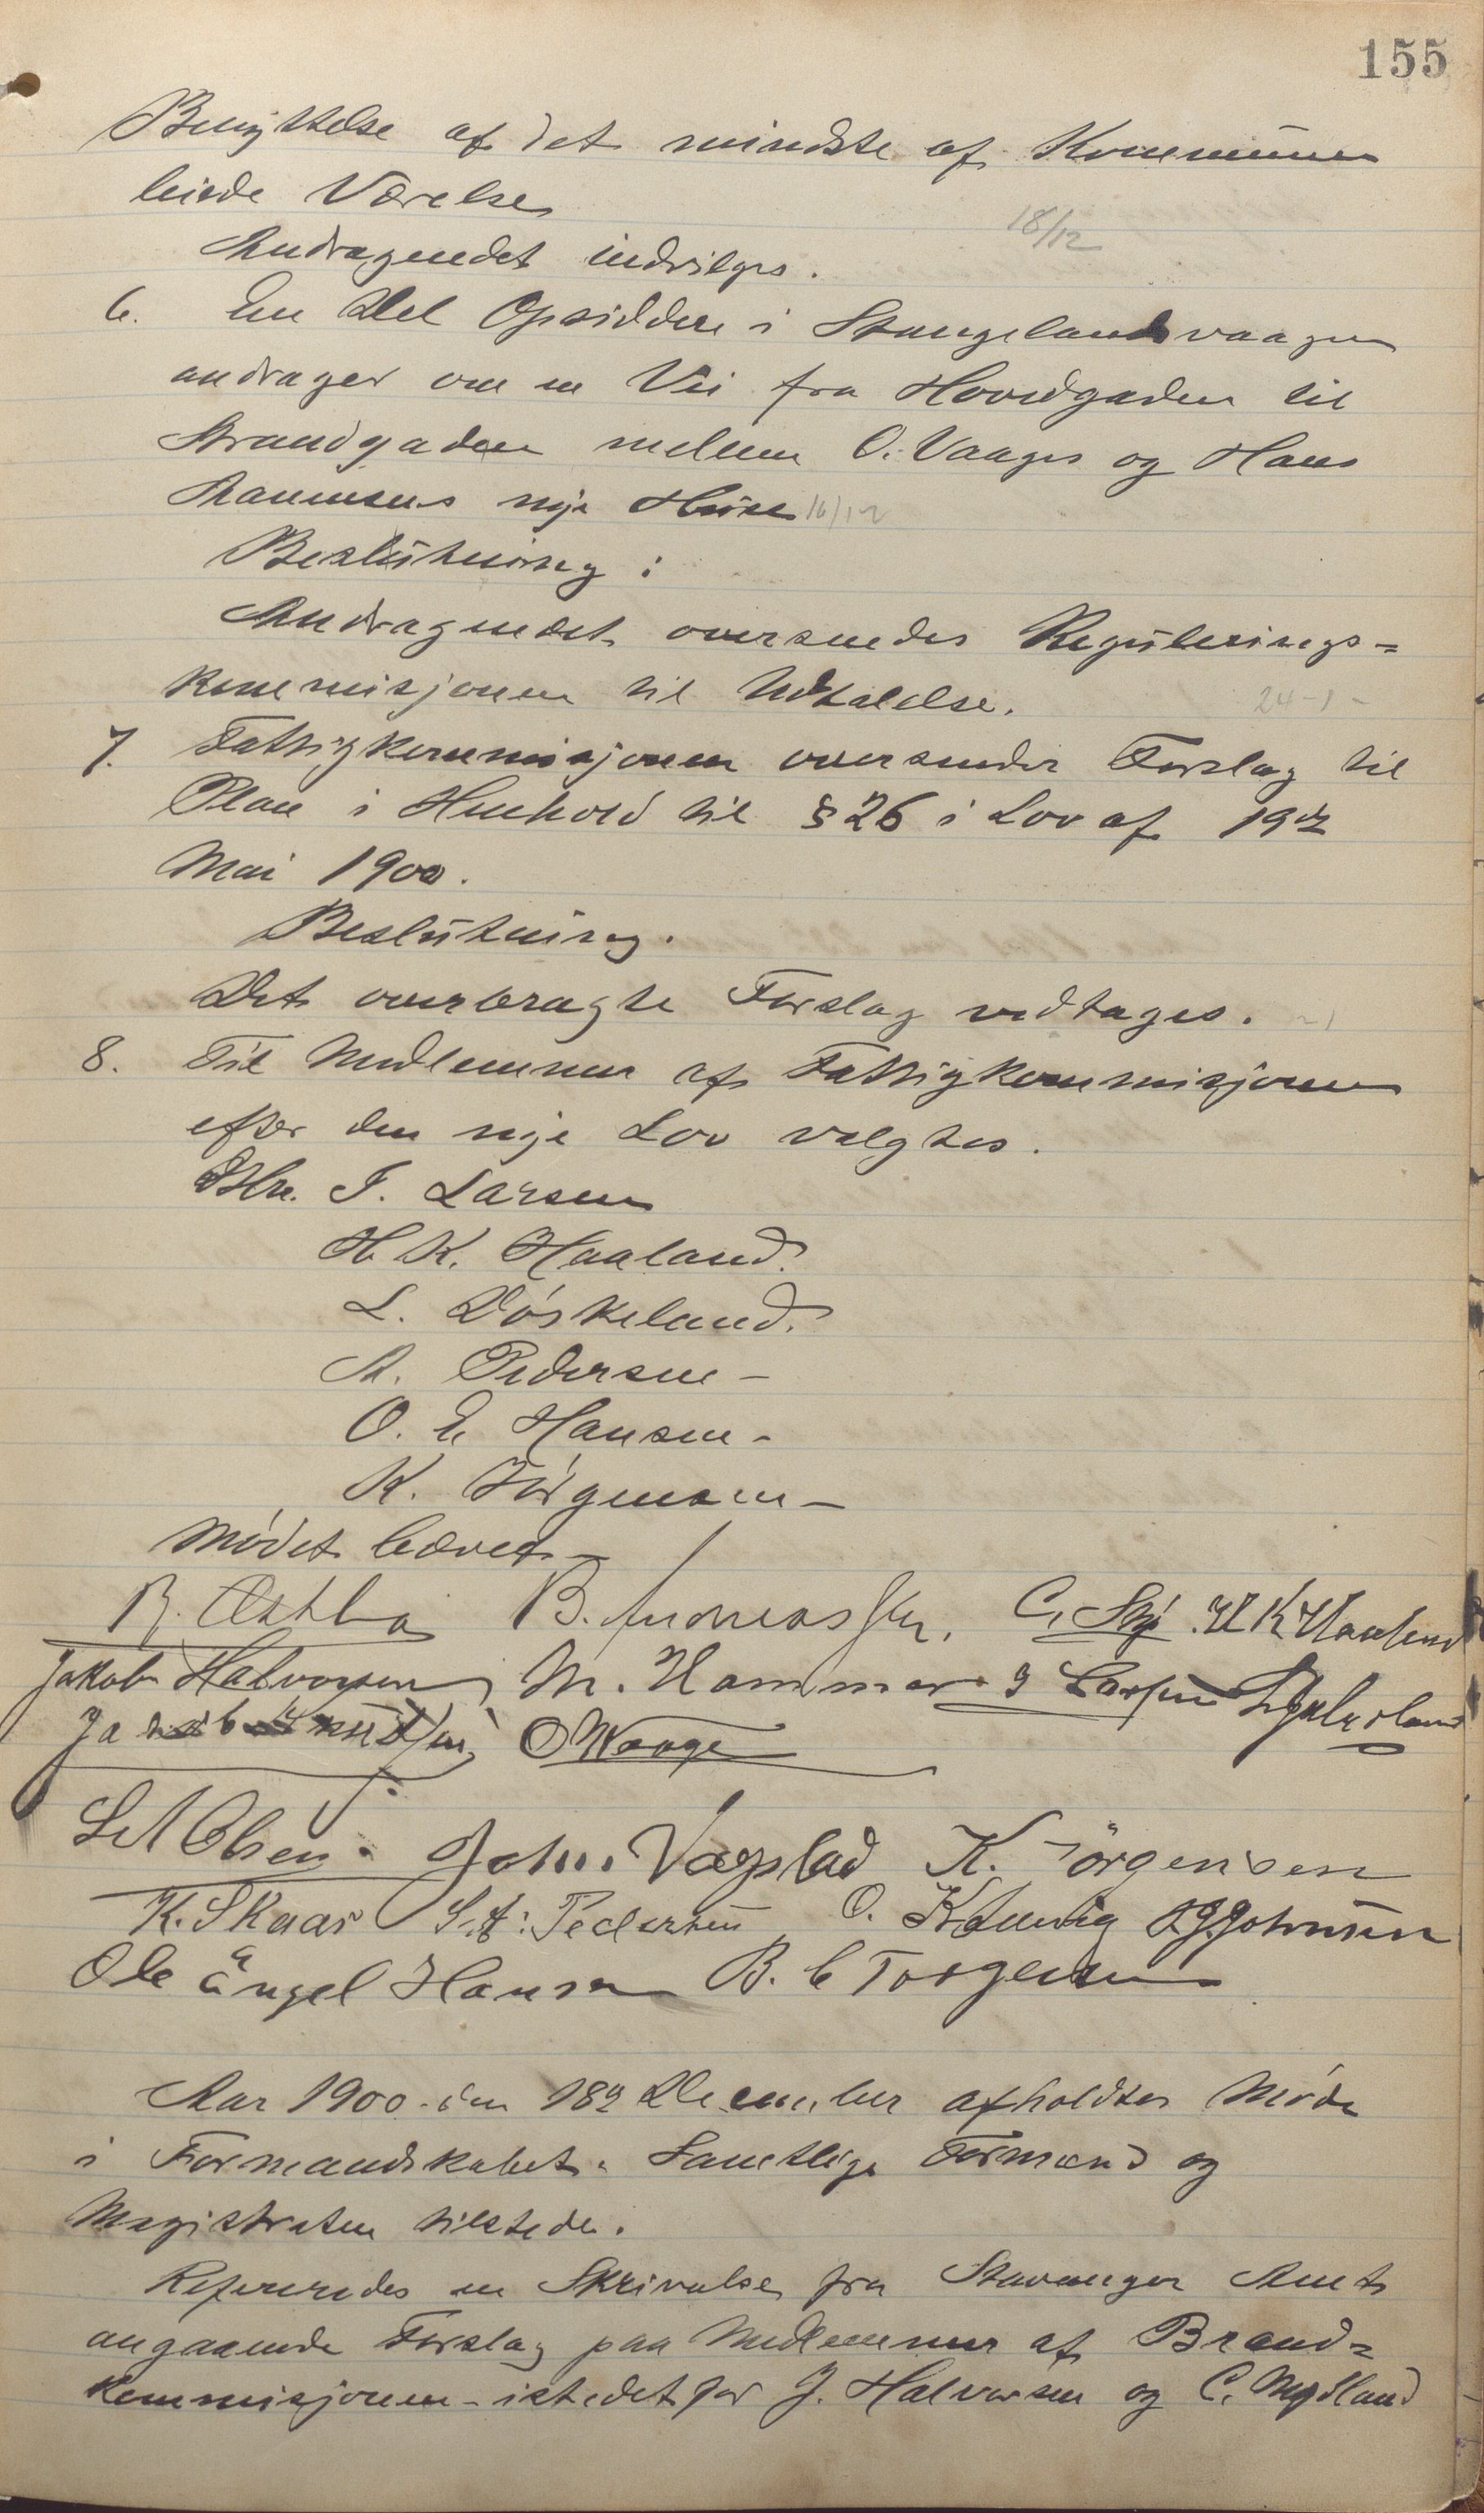 155
Benyttelse af det mindste af Kommunen
leiede Værelse
18/12
Andragendet indvilges.
6. En Del Opsiddere i Stangelandsvaagen
andrager om en Vei fra Hovedgaden til
Strandgaden mellem O. Vaages og Hans
nye Huse 16/12
Beslutning:
Andragendet oversendes Regulerings=
kommisjonen til Udtalelse.
24-1-
7. Fattigkommisjonen oversender Forslag til
Plan i Henhold til § 26 i Lov af 19de
Mai 1900.
Beslutning.
Det overbragte Forslag vedtages.
8. Til Medlemmer af Fattigkommisjonen
efter den nye Lov valgtes.
DHrr. J. Larsen
H. K. Haaland.
L. Døskeland.
A. Pedersen -
O. E. Hansen -
K. Jörgensen -
Mödet hævet -
B. Andreassen. C. H K Haaland
Jakob Halvorsen M. Hammer J Larsen
Jakob Knudsen O Waage
L A Olsen. John. Vagslad K. Jörgensen
K. Skaar S. A. Pedersen O. K. J. Johnsen
Ole Engel Hansen B. C Torgersen
Aar 1900 den 18de December afholdtes Möde
i Formandskabet. Samtlige Formænd og
Magistraten tilstede.
Refereredes en Skrivelse fra Stavanger Amt
angaaende Forslag paa Medlemmer af Brand=
kommisjonen istedetfor J. Halvorsen og C. Mydland